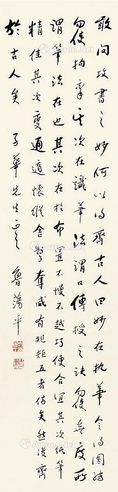 敢問攻書之妙何以得齊古人曰妙在執筆令得圓暢
勿使拘攣其次在識筆法謂口傳手授之訣勿使無度所
謂筆法在也其次在布置不慢不越巧便合宜其次紙筆
精佳其次變通適懷縱舍掣奪咸有規矩五者備矣然後齊
於古人矣 子華先生正之 魯蕩平